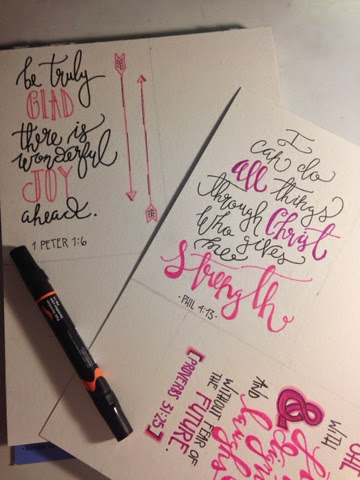 be truly
GLAD
there is
wonderful
JOY
ahead.
1 PETER 1:6
I
can do
all things
through Christ
who gives
me
Strength
·PHIL 4:13·
WITH
&
AND
laughs
WITHOUT FEAR OF
THE FUTURE.
[PROVERBS 31:25]